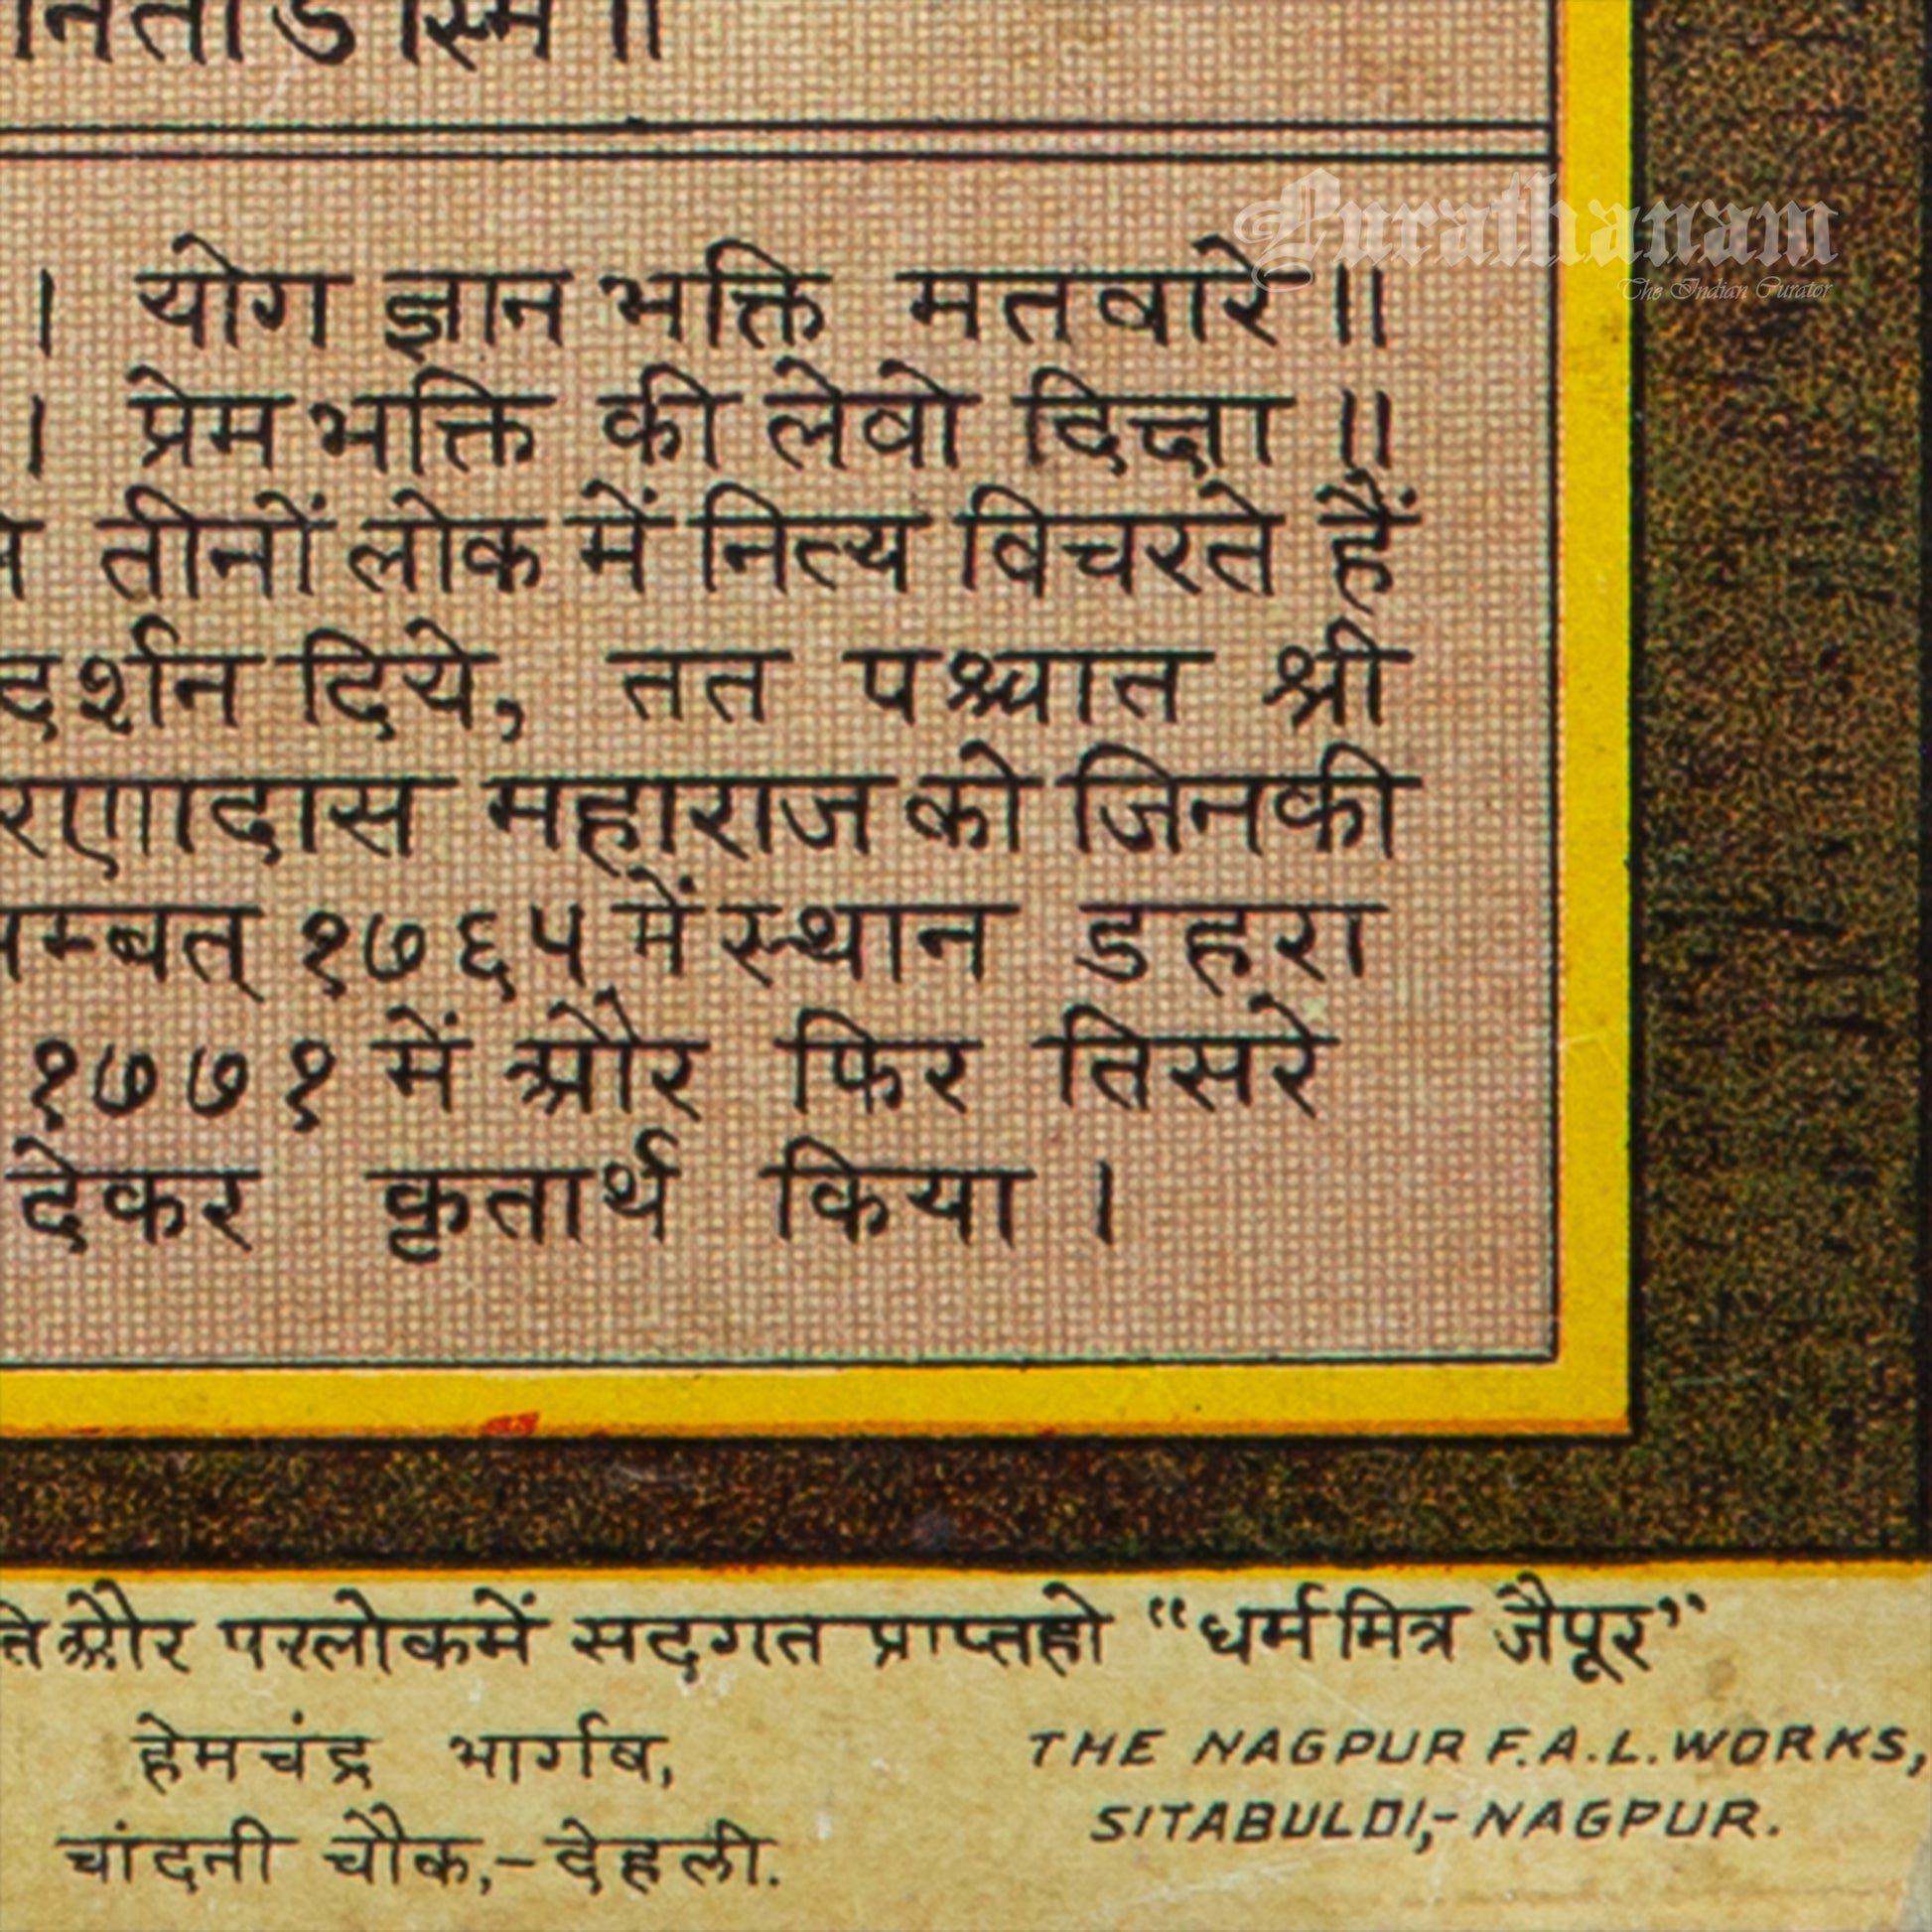 नितोऽस्मि ॥
Curathanam
The Indian Curator
। योग ज्ञान भक्ति मतवारे ॥
। प्रेम भक्ति की लेवो दिक्षा ॥
तीनों लोक में नित्य विचरते हैं
दर्शन दिये, तत पश्चात श्री
रणदास महाराज को जिनकी
म्बत् १७६५ में स्थान डहरा
१७७१ में और फिर तिसरे
देकर कृतार्थ किया ।
ते और परलोकमें सदगत प्राप्तहो “धर्ममित्र जैपूर”
हेमचंद्र भार्गव,
चांदनी चौक,-देहली.
THE NAGPUR F.A.L. WORKS,
SITABULDI,- NAGPUR.